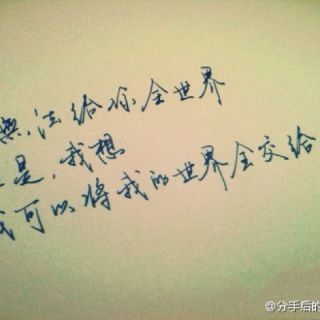 無法给你全世界
是,我想
我可以将我的世界全交给
@分手后的